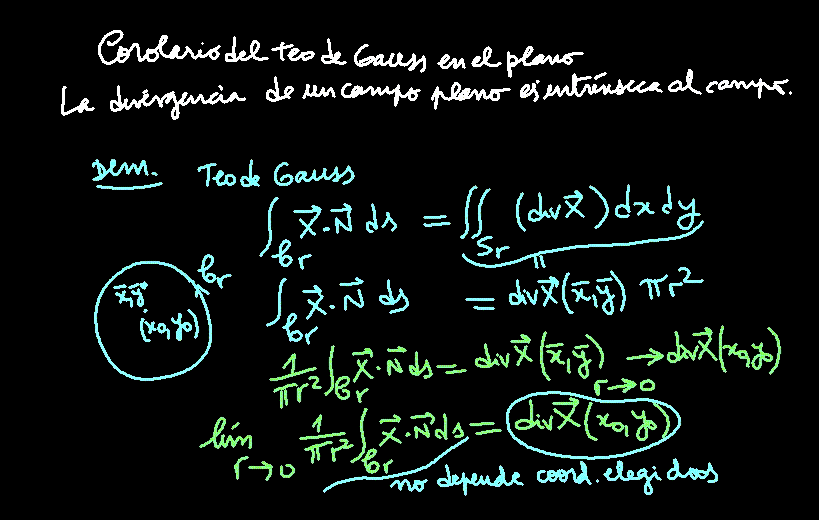 Corolario del Teo de Gauss en el plano
La divergencia de un campo plano es intrínseca al campo.
Dem. Teo de Gauss
∫_{𝒞r} X⃗·N⃗ ds = ∬_{Sr} (div X⃗) dx dy
𝒞r
x̄,ȳ
(x0,y0)
∫_{𝒞r} X⃗·N⃗ ds = div X⃗(x̄,ȳ) πr²
1/πr² ∫_{𝒞r} X⃗·N⃗ ds = div X⃗(x̄,ȳ) → div X⃗(x0,y0)
r→0
lím_{r→0} 1/πr² ∫_{𝒞r} X⃗·N⃗ ds = div X⃗(x0,y0)
no depende coord. elegidas